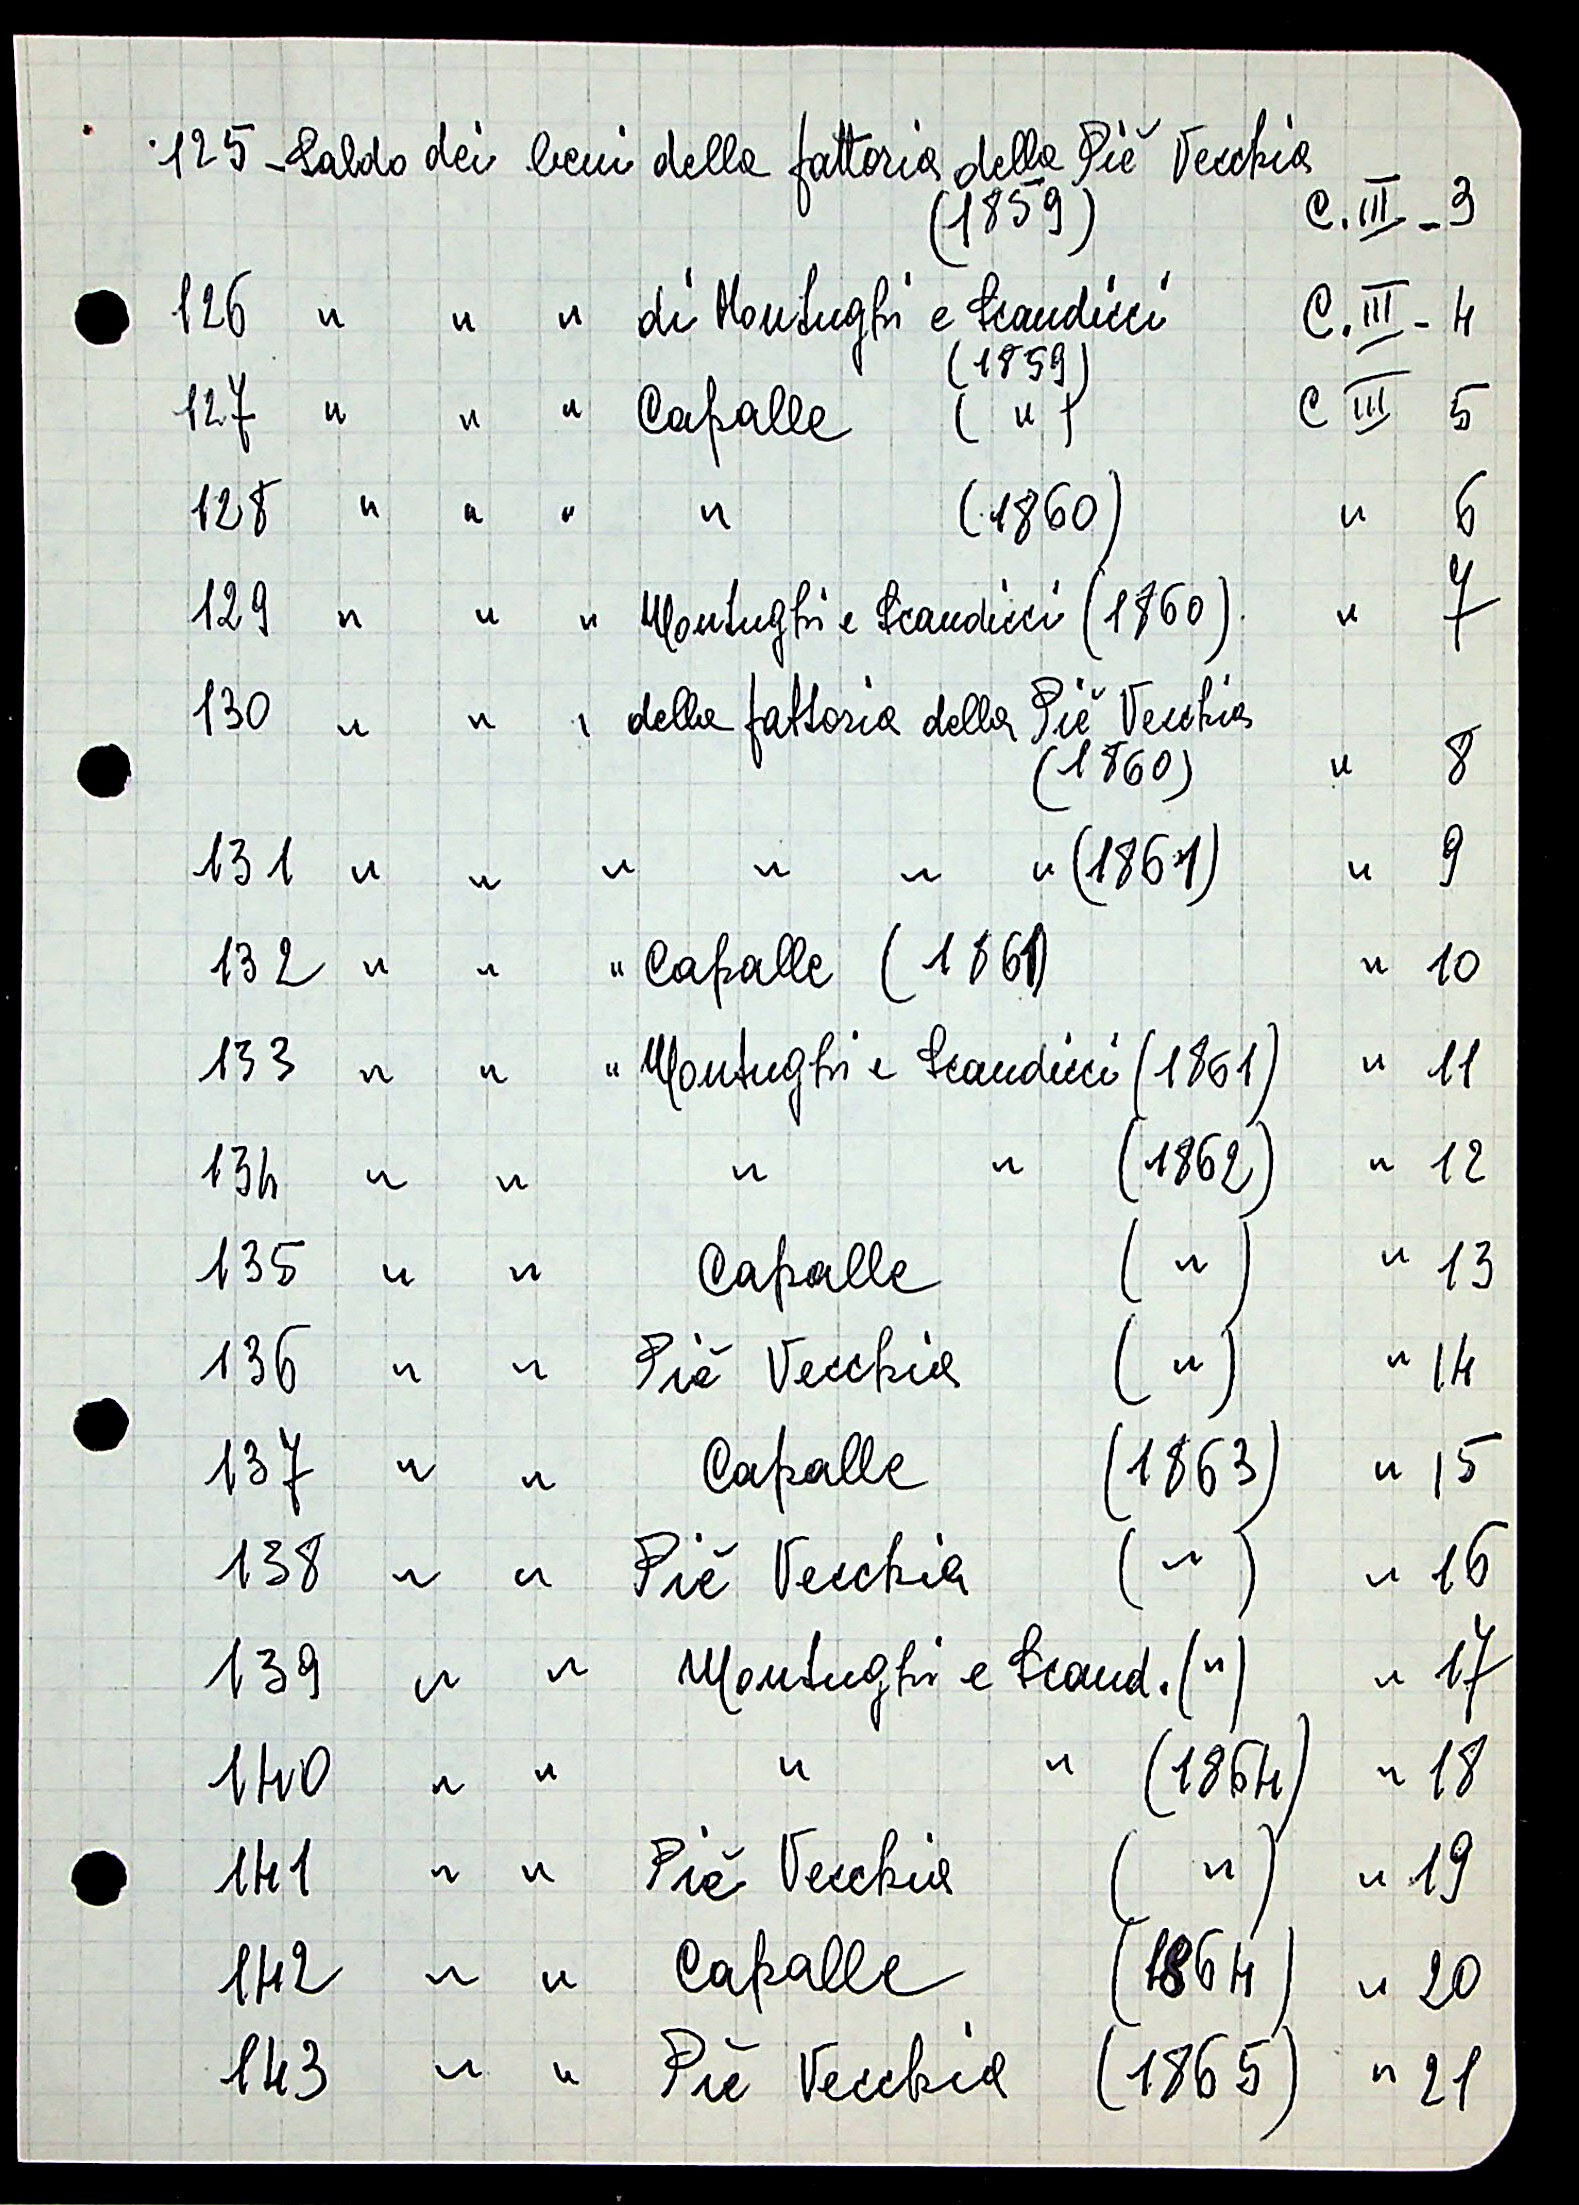 125 - Saldo dei beni della fattoria della Piĕ Vecchia
(1859) C. III - 3
126 " " " di Montughi e Scandicci C. III - 4
(1859)
127 " " " Capalle ( " ) C III 5
128 " " " " (1860) " 6
129 " " " Montughi e Scandicci (1860). " 7
130 " " " della fattoria della Piĕ Vecchia
(1860) " 8
131 " " " " " " (1861) " 9
132 " " " Capalle (1861) " 10
133 " " " Montughi e Scandicci (1861) " 11
134 " " " " (1862) " 12
135 " " Capalle ( " ) " 13
136 " " Piĕ Vecchia ( " ) " 14
137 " " Capalle (1863) " 15
138 " " Piĕ Vecchia ( " ) " 16
139 " " Montughi e Scand. ( " ) " 17
140 " " " " (1864) " 18
141 " " Piĕ Vecchia ( " ) " 19
142 " " Capalle (1864) " 20
143 " " Piĕ Vecchia (1865) " 21